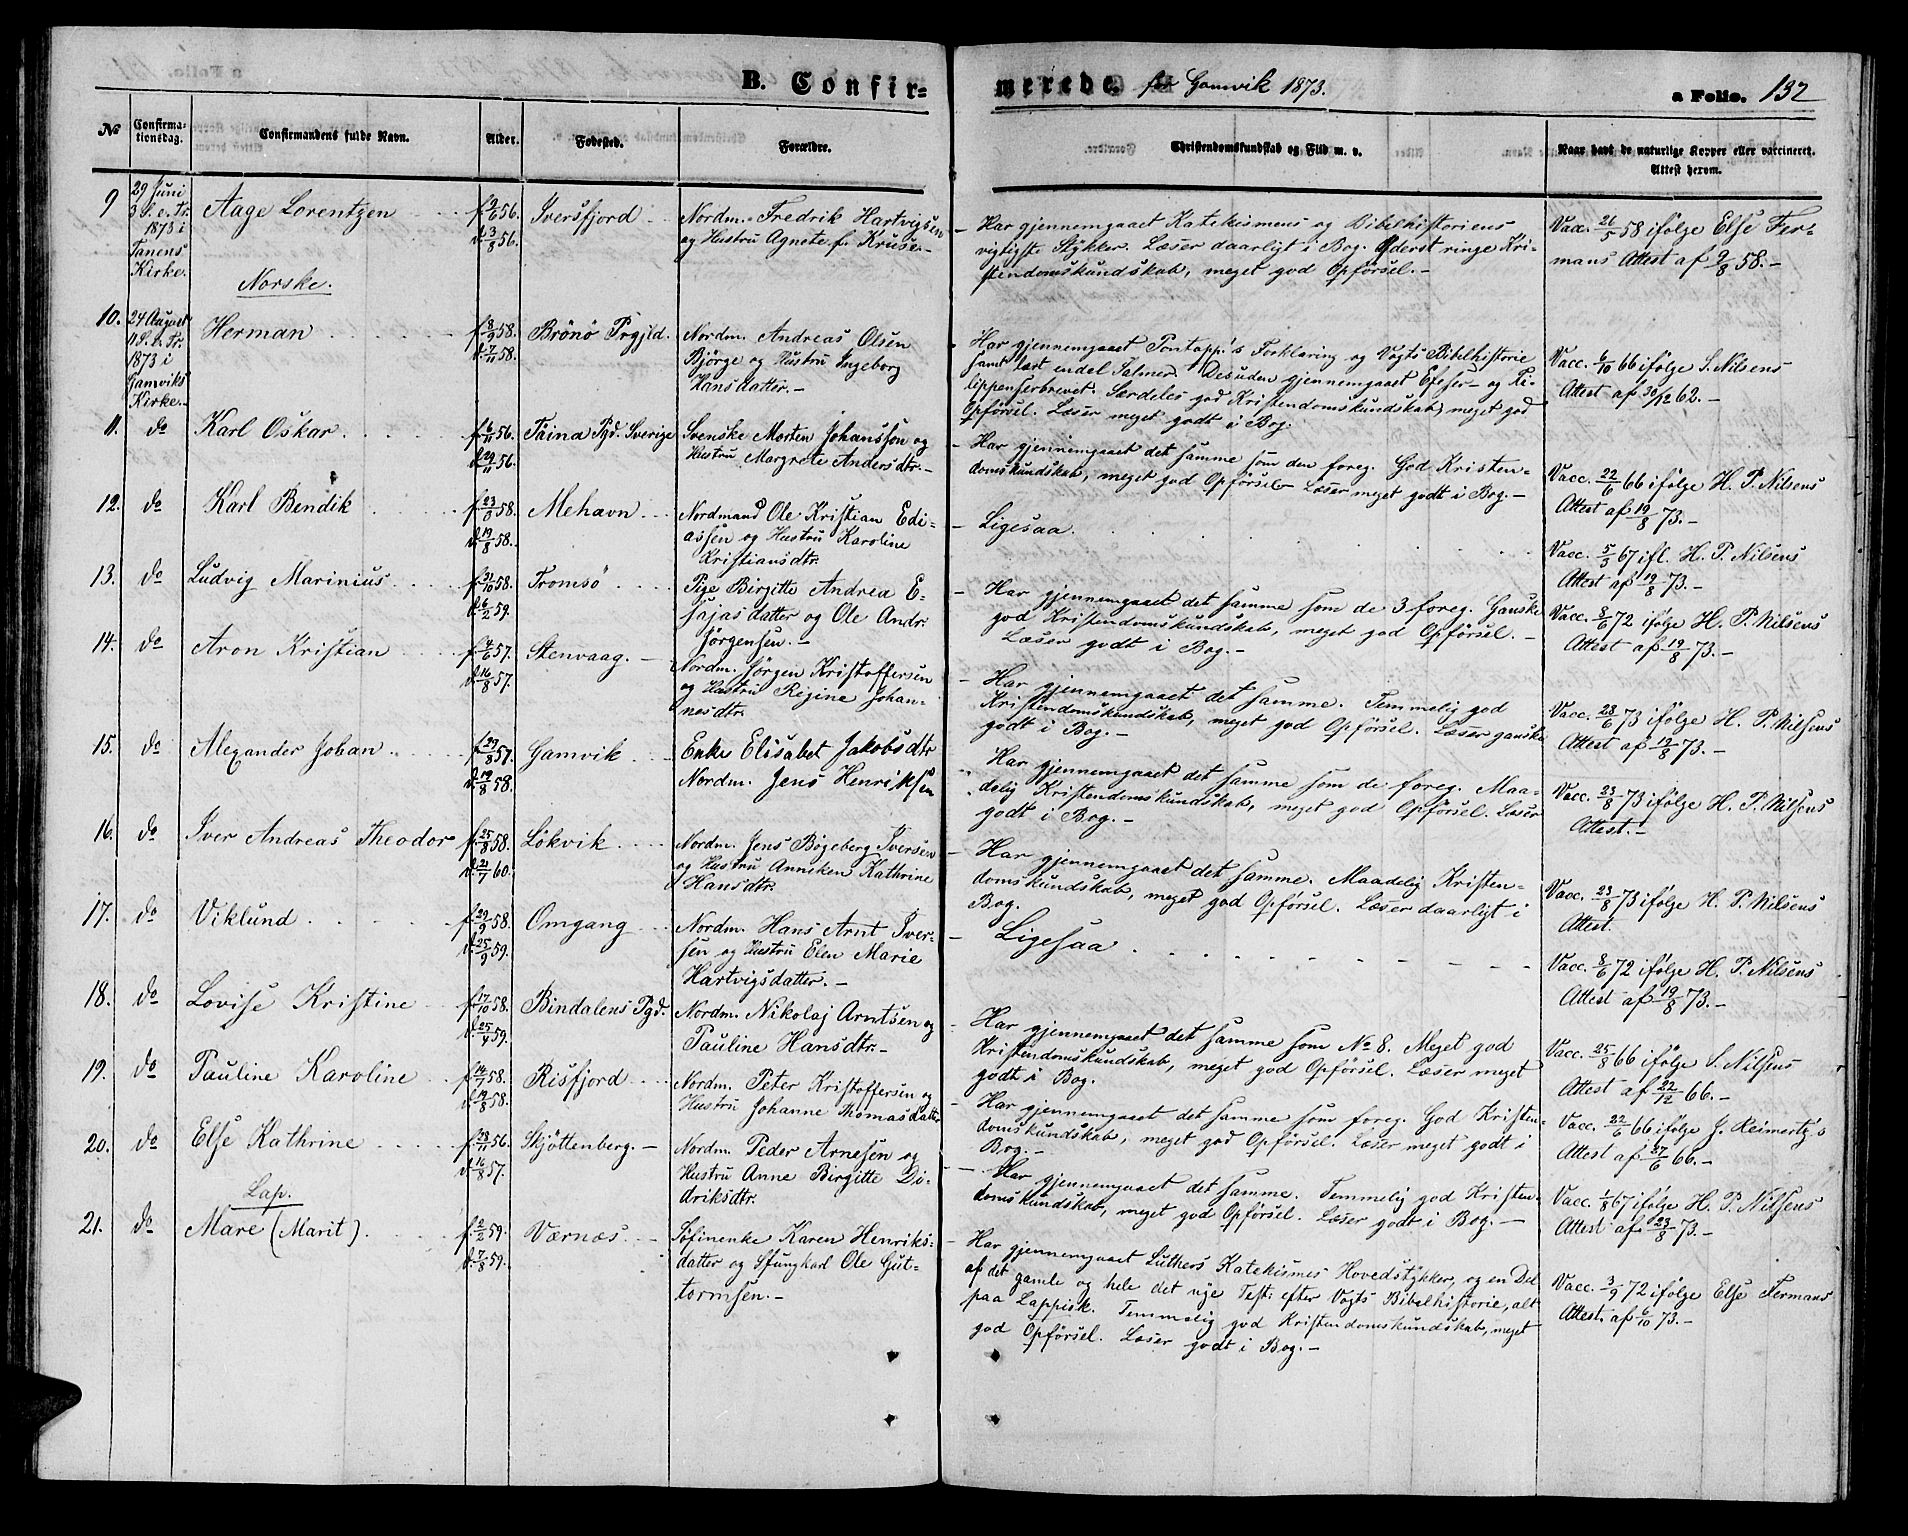 B. Confir-
merede. for Gamvik 1873.
a Folio. 132
No
Confirma-
tionsdag.
Confirmandens fulde Navn.
Alder.
Fødested.
Forældre.
Christendomskundskab og Flid m. v.
Naar havt de naturlige Kopper eller vaccineret.
Attest herom.
9
29 Juni
3 S. e. Tr.
1873 i
Tanens
Kirke.
Aage Lorentzen
f. 9/6 56.
d. 3/8 56.
Iversfjord
Nordm. Fredrik Hartvigsen
og Hustru Agnete f. Kruse.-
- Har gjennemgaaet Katekismens og Bibelhistoriens
vigtigste Stykker. Læser daarligt i Bog. Yderst ringe Kri-
stendomskundskab, meget god Opførsel.-
Vacc. 26/5 58 ifølge Else Fer-
mans Attest af 9/8 58.-
Norske.
10.
24 August
11 S. e. Tr.
1873 i
Gamviks
Kirke.-
Herman
f. 8/9 58.
d. 7/11 58.
Brönö Prgjld.
Nordm. Andreas Olsen
Bjørge og Hustru Ingeborg
Hansdatter.-
Har gjennemgaaet Pontopp.'s Forklaring og Vogts Bibelhistorie
samt lært endel Salmer. Desuden gjennemgaaet Efeser- og Fi-
lippenserbrevet. Særdeles god Kristendomskundskab, meget god
Opførsel. Læser meget godt i Bog.
Vacc. 6/10 66 ifølge S. Nilsens
Attest af 30/12 62.-
11.
do
Karl Oskar
f. 6/11 56.
d. 29/11 56.
Täina Pgd. Sverige
Svenske Morten Johansson og
Hustru Margrete Andersdtr.-
- Har gjennemgaaet det samme som den foreg. God Kristen-
domskundskab, meget god Opførsel. Læser meget godt i Bog.-
Vacc. 22/6 66 ifølge H. P. Nilsens
Attest af 19/8 73.-
12.
do
Karl Bendik
f. 23/3 58.
d. 19/8 58.
Mehavn
Nordmand Ole Kristian Edi-
assen og Hustru Karoline
Kristiansdtr.
- Ligesaa
Vacc. 5/3 67 ifl. H. P. Nilsens
Attest af 19/8 73.-
13.
do
Ludvig Marinius
f. 31/10 58.
d. 6/2 59.
Tromsö
Pige Birgitte Andrea E-
sajasdatter og Ole Andr.
Jørgensen.-
- Har gjennemgaaet det samme som de 3 foreg. Ganske
god Kristendomskundskab, meget god Opførsel.-
Læser godt i Bog.-
Vacc. 8/6 72 ifølge H. P. Nilsens
Attest af 19/8 73.-
14.
do
Aron Kristian
f. 4/6 57.
d. 16/8 57.
Stenvaag.-
Nordm. Jørgen Kristoffersen
og Hustru Regine Johan-
nesdtr.
- Har gjennemgaaet det samme. Temmelig god
Kristendomskundskab, meget god Opførsel. Læser ganske
godt i Bog.-
Vacc. 28/6 73 ifølge H. P. Nilsens
Attest af 19/8 73.-
15.
do
Alexander Johan
f. 29/8 57.
d. 19/8 58.
Gamvik
Enke Elisabet Jakobsdtr
Nordm. Jens Henriksen
Har gjennemgaaet det samme som de foreg. Maa-
delig Kristendomskundskab, meget god Opførsel. Læser
godt i Bog.-
Vacc. 23/8 73 ifølge H. P. Nilsens
Attest.-
16.
do
Iver Andreas Theodor
f. 25/8 58.
d. 21/7 60.
Lökvik
Nordm. Jens Bøgeberg Iversen
og Hustru Anniken Kathrine
Hansdtr.
- Har gjennemgaaet det samme. Maadelig Kristen-
domskundskab, meget god Opførsel. Læser daarligt i
Bog.
Vacc. 23/8 73 ifølge H. P. Nilsens
Attest.
17.
do
Viklund
f. 29/9 58.
d. 25/9 59.
Omgang
Nordm. Hans Arnt Iver-
sen og Hustru Elen Marie
Hartvigsdatter.-
- Ligesaa
Vacc. 8/6 72 ifølge H. P. Nilsens
Attest af 19/8 73.-
18.
do
Lovise Kristine
f. 17/10 58.
d. 25/4 59.
Bindalens Pgd.
Nordm. Nikolaj Arntsen og
Pauline Hansdtr.-
- Har gjennemgaaet det samme som No 8. Meget god
Kristendomskundskab, meget god Opførsel. Læser meget
godt i Bog.
Vacc. 25/8 66 ifølge S. Nilsens
Attest af 22/12 66.-
19.
do
Pauline Karoline
f. 14/7 58.
d. 19/8 58.
Risfjord
Nordm. Peter Kristoffersen og
Hustru Johanne Thomasdatter
- Har gjennemgaaet det samme som foreg. God Kristen-
domskundskab, meget god Opførsel. Læser meget godt i
Bog.-
Vacc. 22/6 66 ifølge J. Reimertz's
Attest af 27/6 66.-
20.
do
Else Kathrine
f. 23/11 56.
d. 16/8 57.
Skjöttenberg.-
Nordm. Peder Arnesen og
Hustru Anne Birgitte Di-
driksdtr.
- Har gjennemgaaet det samme. Temmelig god Kristen-
domskundskab, meget god Opførsel. Læser godt i Bog.-
Vacc. 1/8 67 ifølge H. P. Nilsens
Attest af 23/8 73.-
Lap.
21.
do
Mare (Marit)
f. 2/2 59.
d. 7/8 59.
Værnæs
Søfinenke Karen Henriks-
datter og Sfungkarl Ole Gut-
tormsen.-
- Har gjennemgaaet Luthers Katekismes Hovedstykker, og en Del
af det gamle og hele det nye Test. efter Vogts Bibelhistorie, alt
paa Lappisk. Temmelig god Kristendomskundskab, meget
god Opførsel. Læser godt i Bog.-
Vacc. 3/9 72 ifølge Else Fermans
Attest. af 6/10 73.-